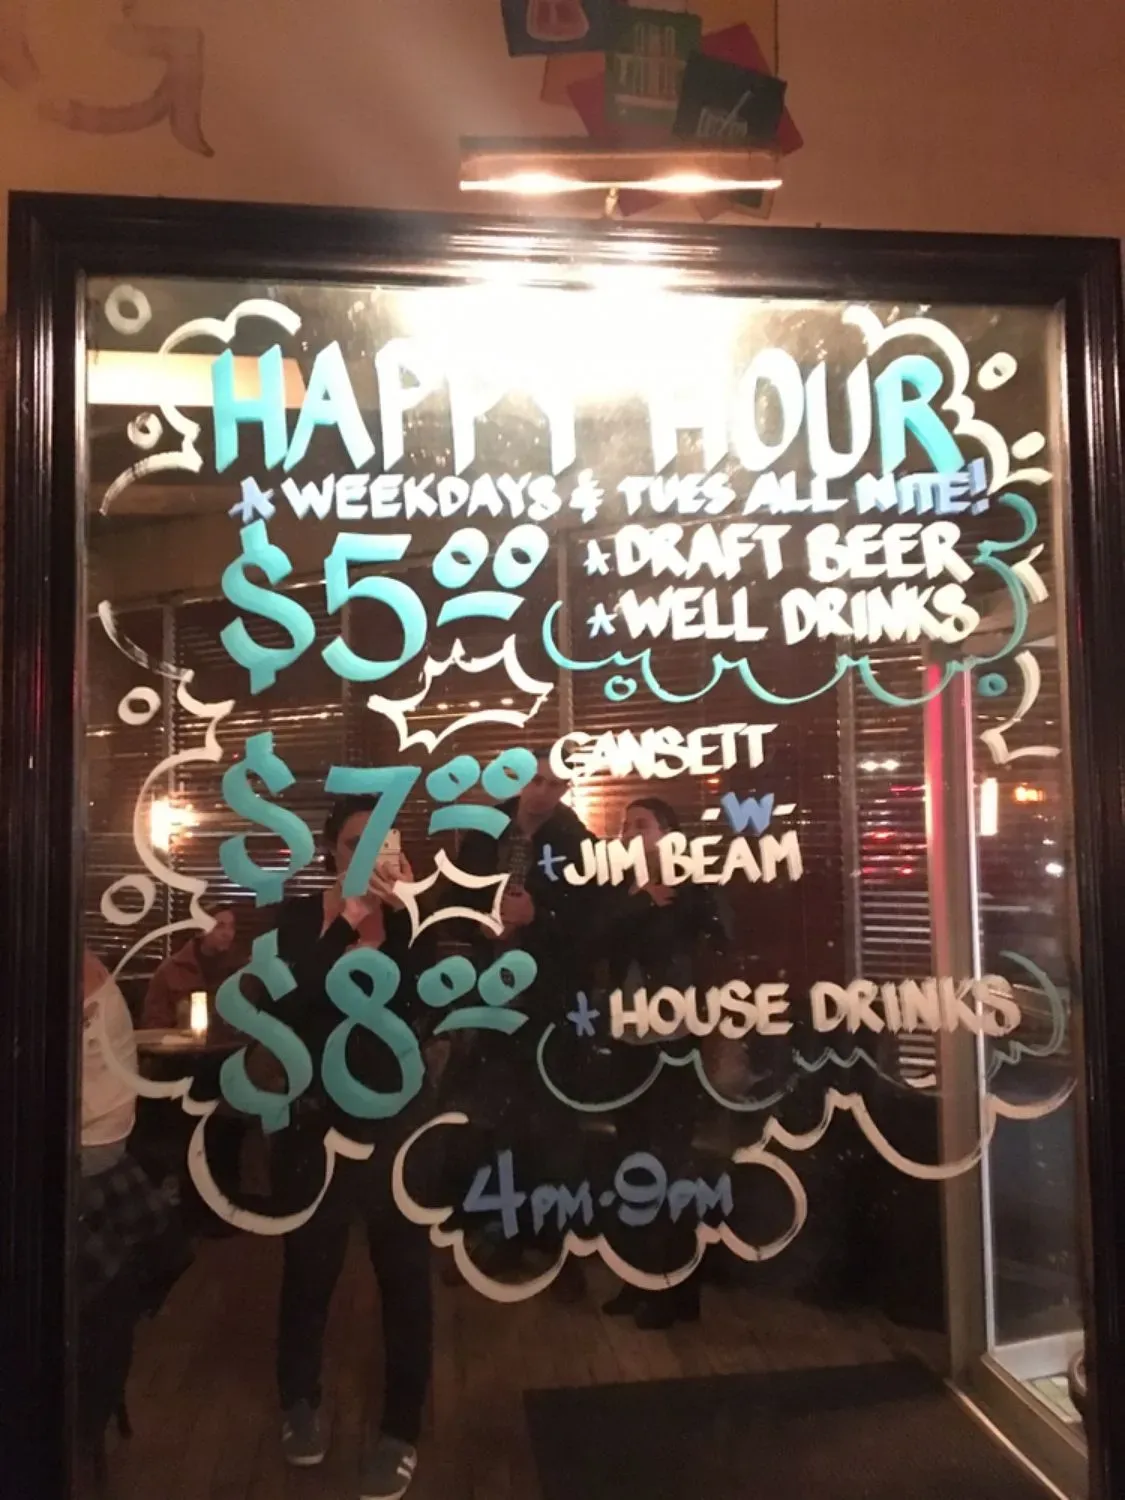 HAPPY HOUR
* WEEKDAYS & TUES ALL NITE!
$5.00 * DRAFT BEER
* WELL DRINKS
$7.00 GANSETT
-W-
+ JIM BEAM
$8.00 * HOUSE DRINKS
4PM-9PM